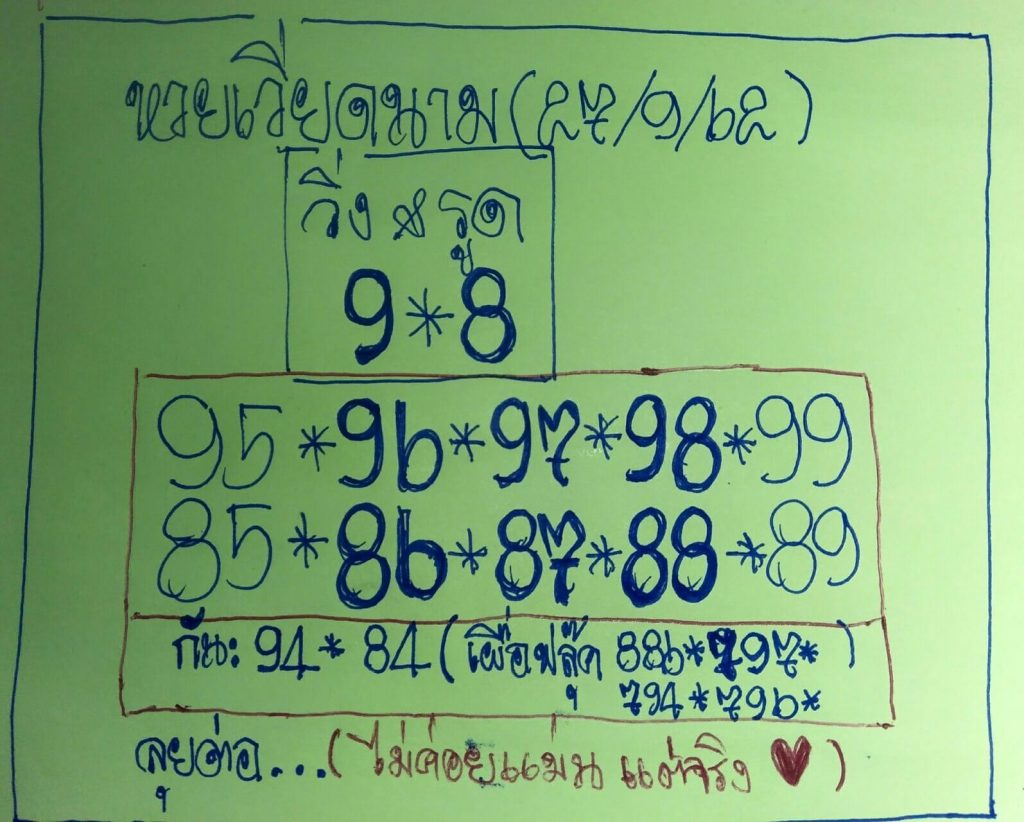 หวยเวียดนาม(27/9/62)
วิ่ง & รูด
9*8
95*96*97*98*99
85*86*87*88*89
กัน: 94*84(เผื่อฟลุ๊ค 886*797*)
794*796*
ลุยต่อ...(ไม่ค่อยแม่น แต่จริง ♥)